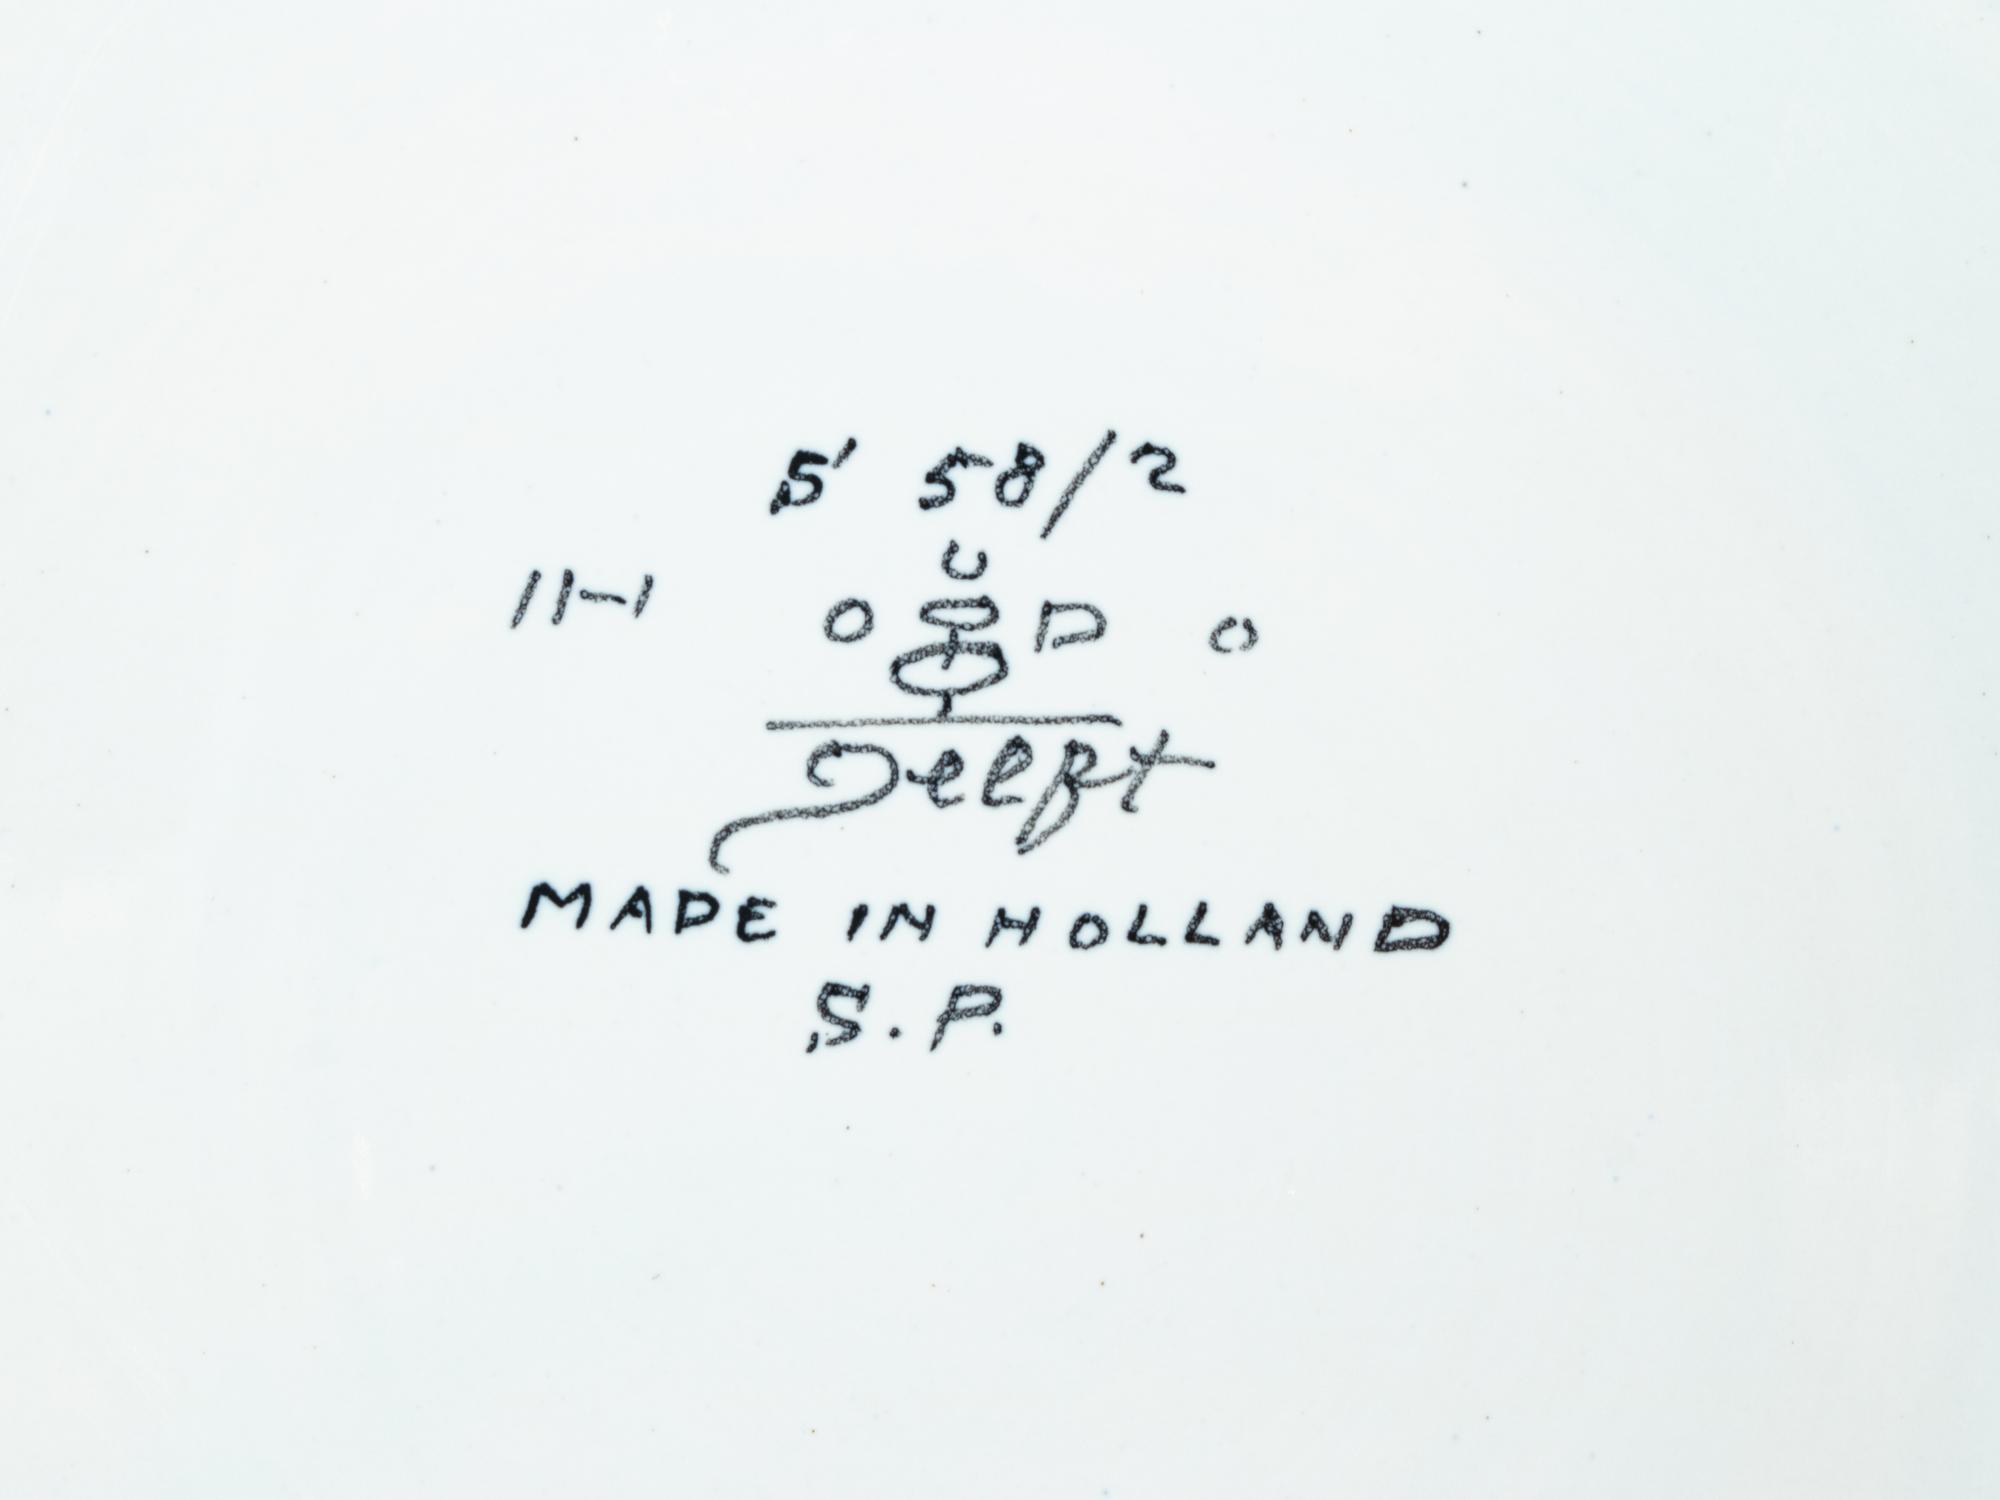 5' 58/2
C
11-1 O D O
Delft
MADE IN HOLLAND
S.P.